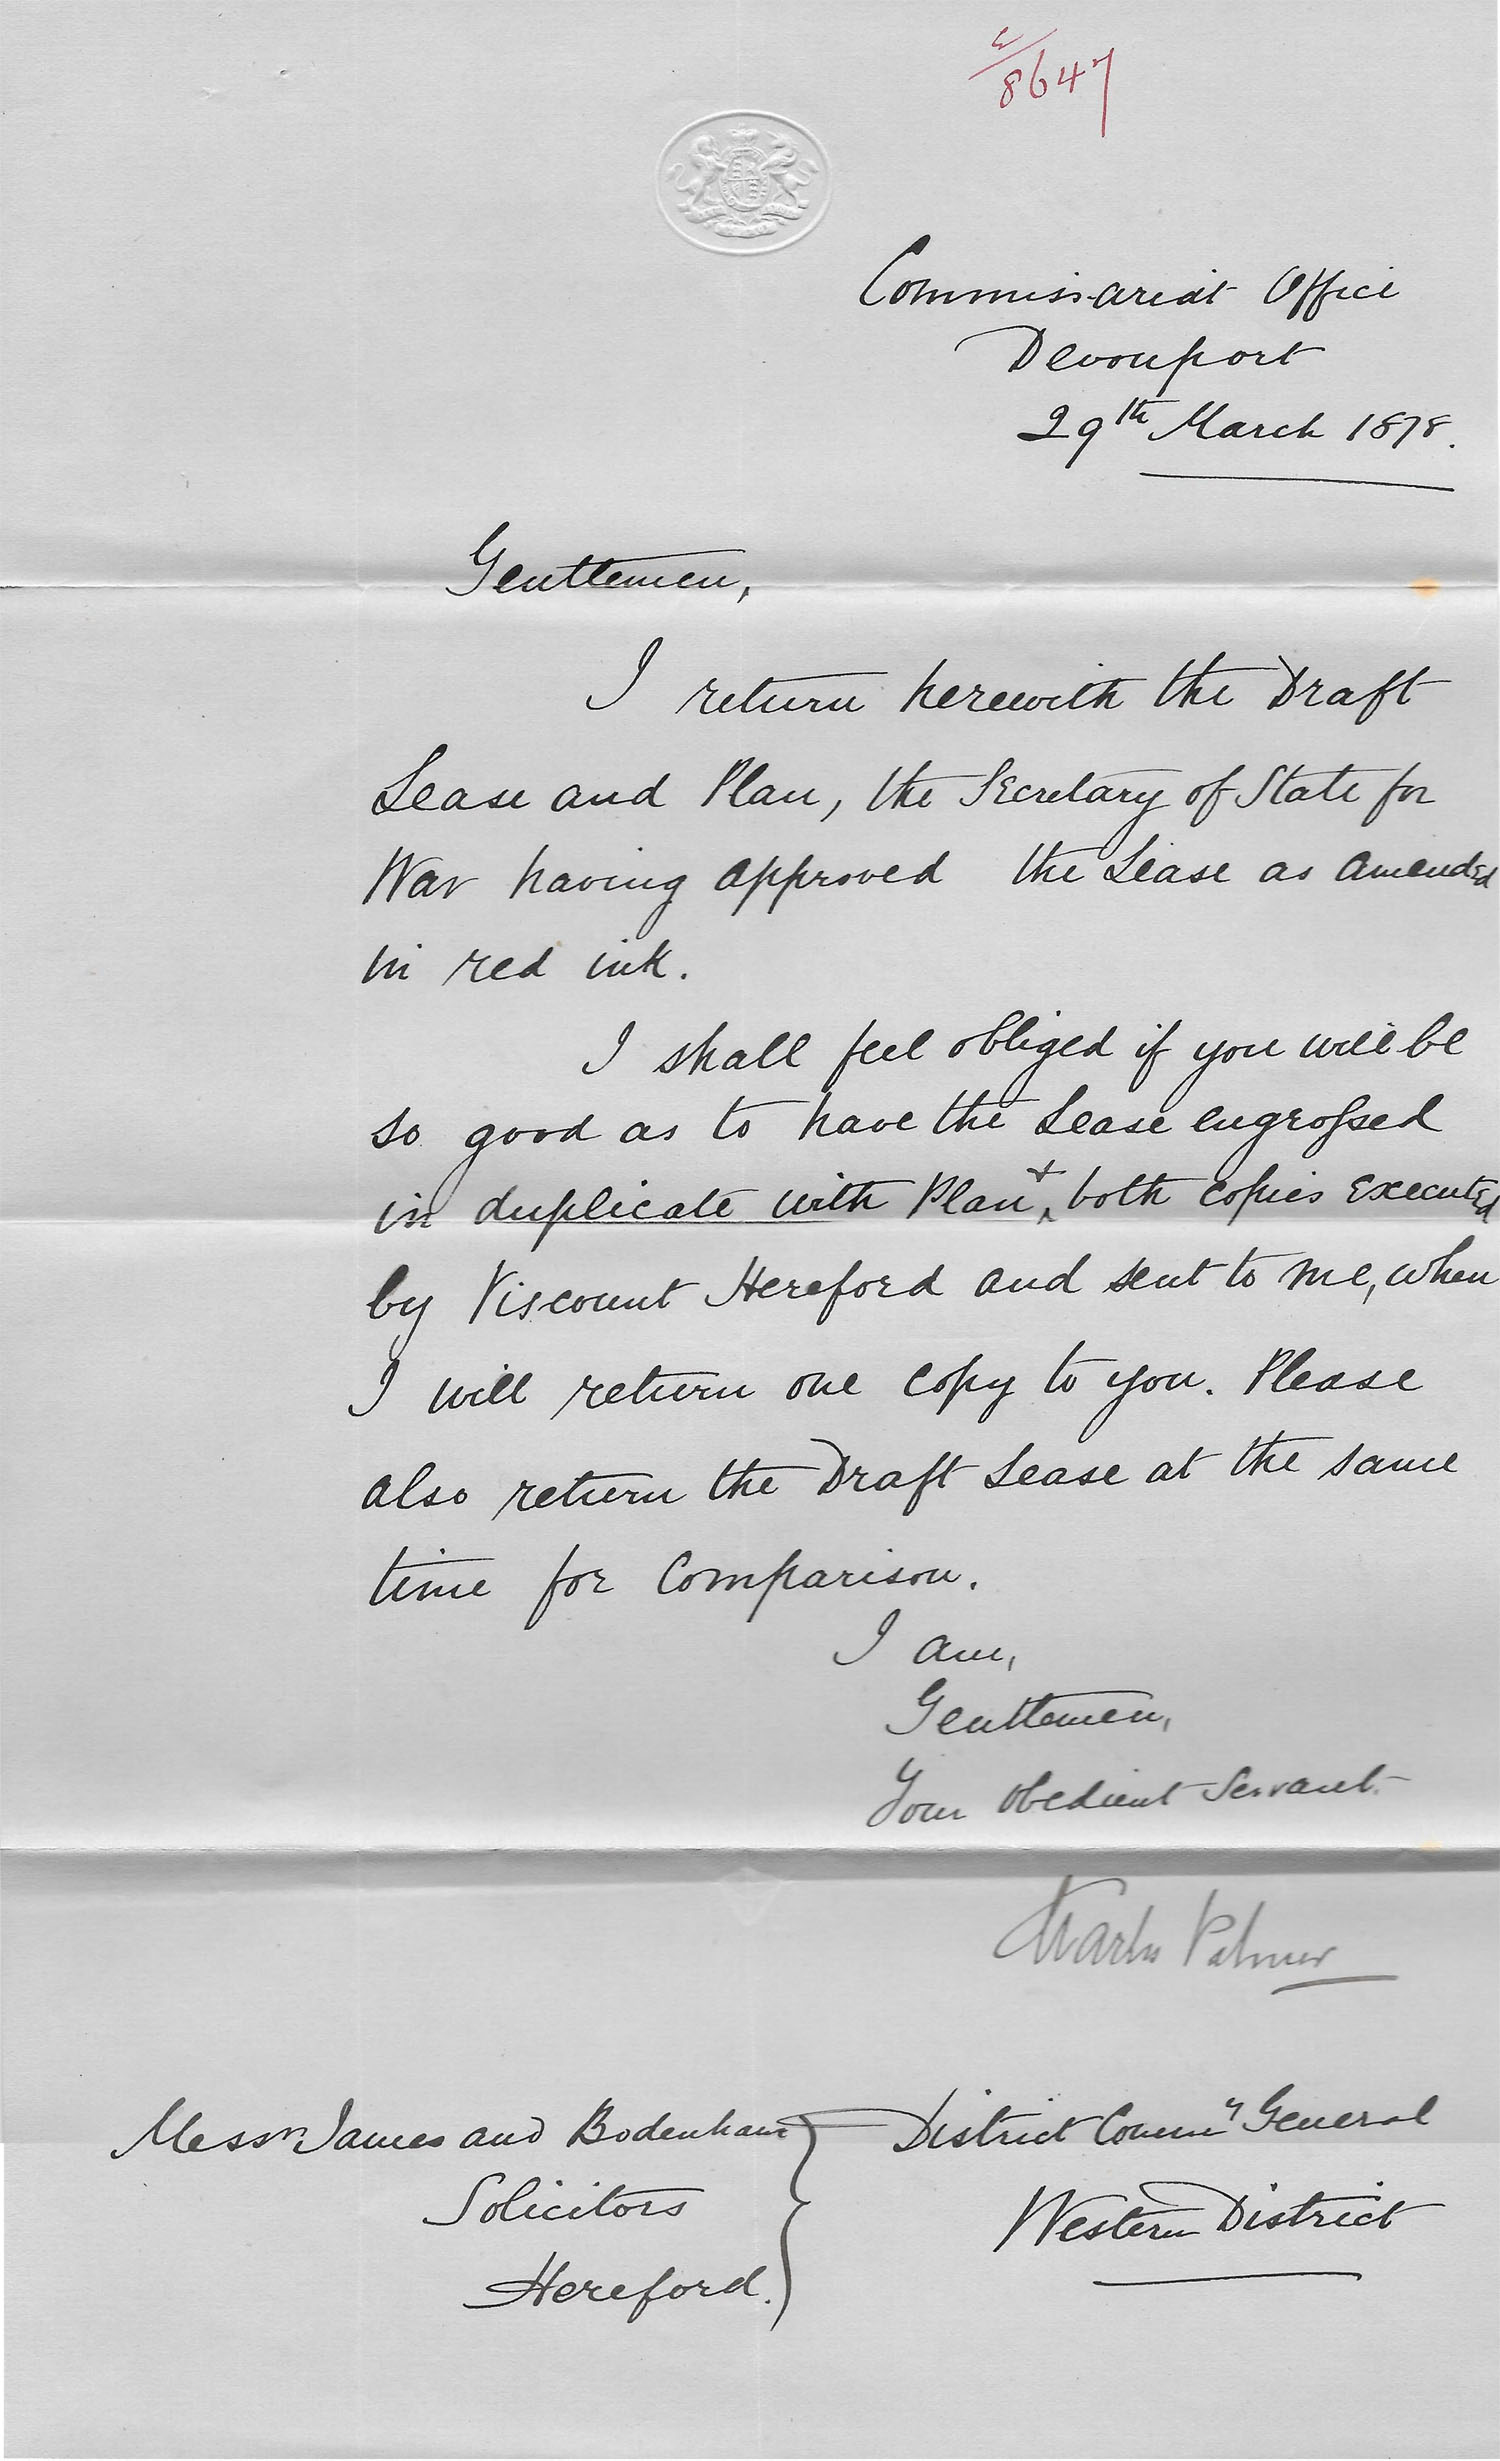 8647
Commissariat Office
Devonport
29th March 1878.
Gentlemen,
I return herewith the Draft
Lease and Plan, the Secretary of State for
War having approved the Lease as amended
in red ink.
I shall feel obliged if you will be
so good as to have the Lease engrossed
in duplicate with Plan & both copies executed
by Viscount Hereford and sent to me, when
I will return one copy to you. Please
also return the Draft Lease at the same
time for Comparison.
I am,
Gentlemen,
Your obedient Servant
Charles Palmer
Messrs James and Bodenham District Commy General
Solicitors Western District
Hereford.